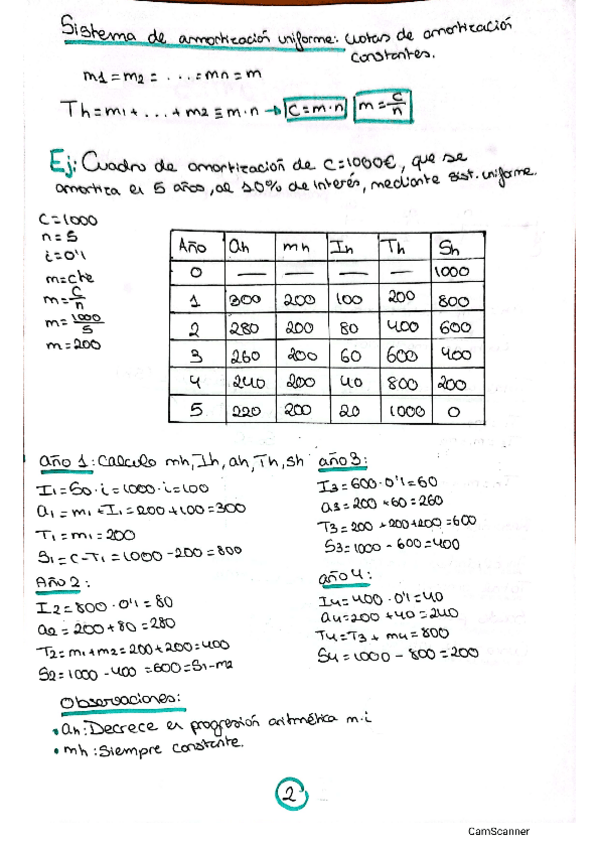 Sistema de amortización uniforme: cuotas de amortización
constantes.
m1=m2= . . . =mn=m
Th=m1+ . . . +m2≡m·n → C=m·n m=C/n
Ej: Cuadro de amortización de C=1000€, que se
amortiza en 5 años, al 10% de interés, mediante sist. uniforme.
C=1000
n=5
i=0'1
m=cte
m=C/n
m=1000/5
m=200
Año ah mh Ih Th Sh
0 — — — — 1000
1 300 200 100 200 800
2 280 200 80 400 600
3 260 200 60 600 400
4 240 200 40 800 200
5 220 200 20 1000 0
Año 1: Calculo mh, Ih, ah, Th, Sh
I1=S0·i=1000·i=100
a1=m1+I1=200+100=300
T1=m1=200
S1=C-T1=1000-200=800
Año 2:
I2=800·0'1=80
a2=200+80=280
T2=m1+m2=200+200=400
S2=1000-400=600=S1-m2
año 3:
I3=600·0'1=60
a3=200+60=260
T3=200+200+200=600
S3=1000-600=400
año 4:
I4=400·0'1=40
a4=200+40=240
T4=T3+m4=800
S4=1000-800=200
Observaciones:
• ah: Decrece en progresión aritmética m·i
• mh: Siempre constante.
2
CamScanner